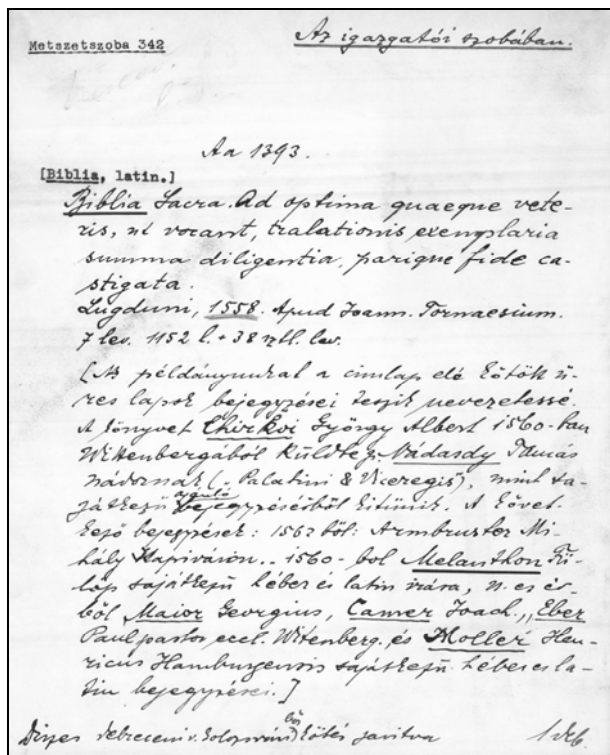 Metszetszoba 342
Az igazgatói szobában.
Aa 1393.
[Biblia, latin.]
Biblia Sacra. Ad optima quaeque vete-
ris, ut vocant, tralationis exemplaria
summa diligentia, parique fide ca-
stigata.
Lugduni, 1558. Apud Joann. Tornaesium.
7 lev. 1152 l. + 38 sztl. lev.
[Az példányunkat a cimlap elé kötött ü-
res lapok bejegyzései teszik nevezetessé.
A könyvet Chirkoi György Albert 1560-ban
Wittenbergából küldte Nádasdy Tamás
nádornak (. Palatini & Viceregis), mint sa-
játkezű ajánló bejegyzéséből kitünik. A követ-
kező bejegyzések: 1562 ből: Armbruster Mi-
hály Kapiváron.. 1560-bol Melanthon Fü-
löp sajátkezű héber és latin irása, u. es év-
ből Maior Georgius, Camer Joach., Eber
Paul pastor eccl. Witenberg. és Moller Hen-
ricus Hamburgensis sajátkezű héber es la-
tin bejegyzései.]
Diszes debreceni v. kolozsvári bőr kötés javitva
1 deb.